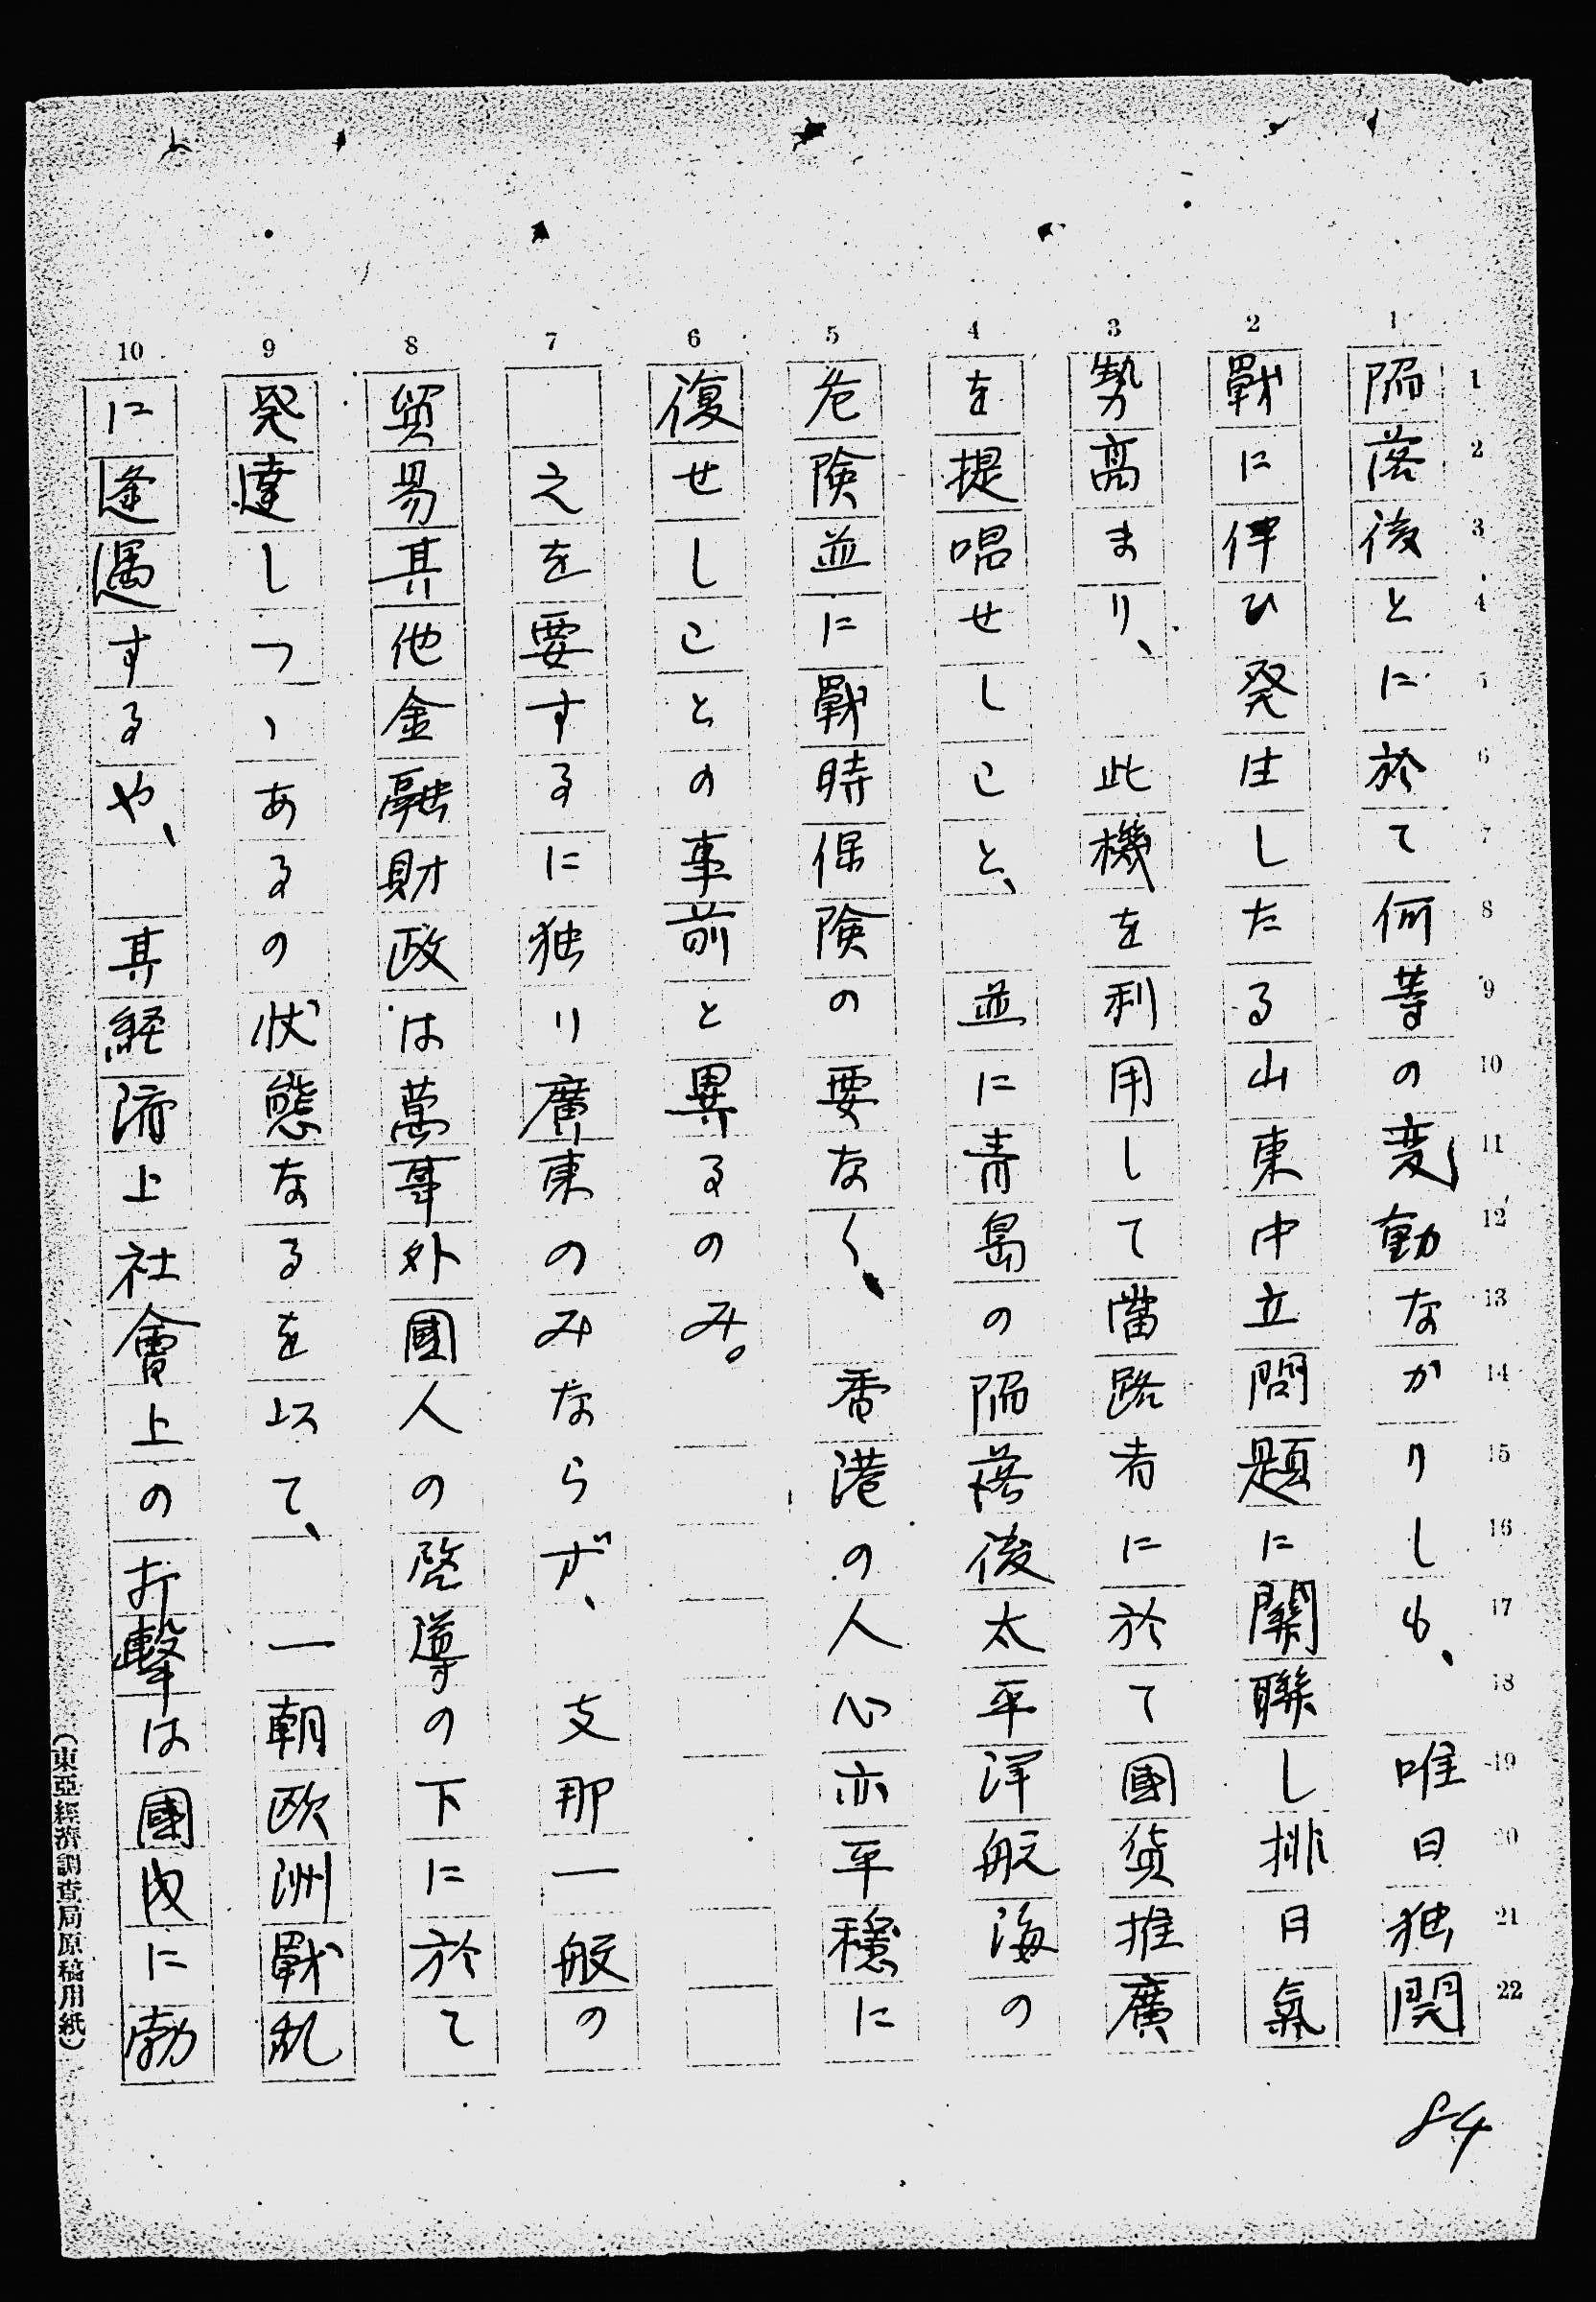 陥落後とに於て何等の変動なかりしも、唯日独開
戰に伴ひ発生したる山東中立問題に関聯し排日氣
勢高まり、此機を利用して當路者に於て國貨推廣
を提唱せしこと、並に青島の陥落後太平洋航海の
危険並に戰時保険の要なく、香港の人心亦平穏に
復せしことの事前と異るのみ。
之を要するに独り廣東のみならず、支那一般の
貿易其他金融財政は萬事外國人の啓導の下に於て
発達しつゝあるの状態なるを以て、一朝欧洲戰乱
に逢遇するや、其経済上社會上の打撃は國内に勃
84
1 2 3 4 5 6 7 8 9 10
1 2 3 4 5 6 7 8 9 10 11 12 13 14 15 16 17 18 19 20 21 22
(東亞經濟調査局原稿用紙)